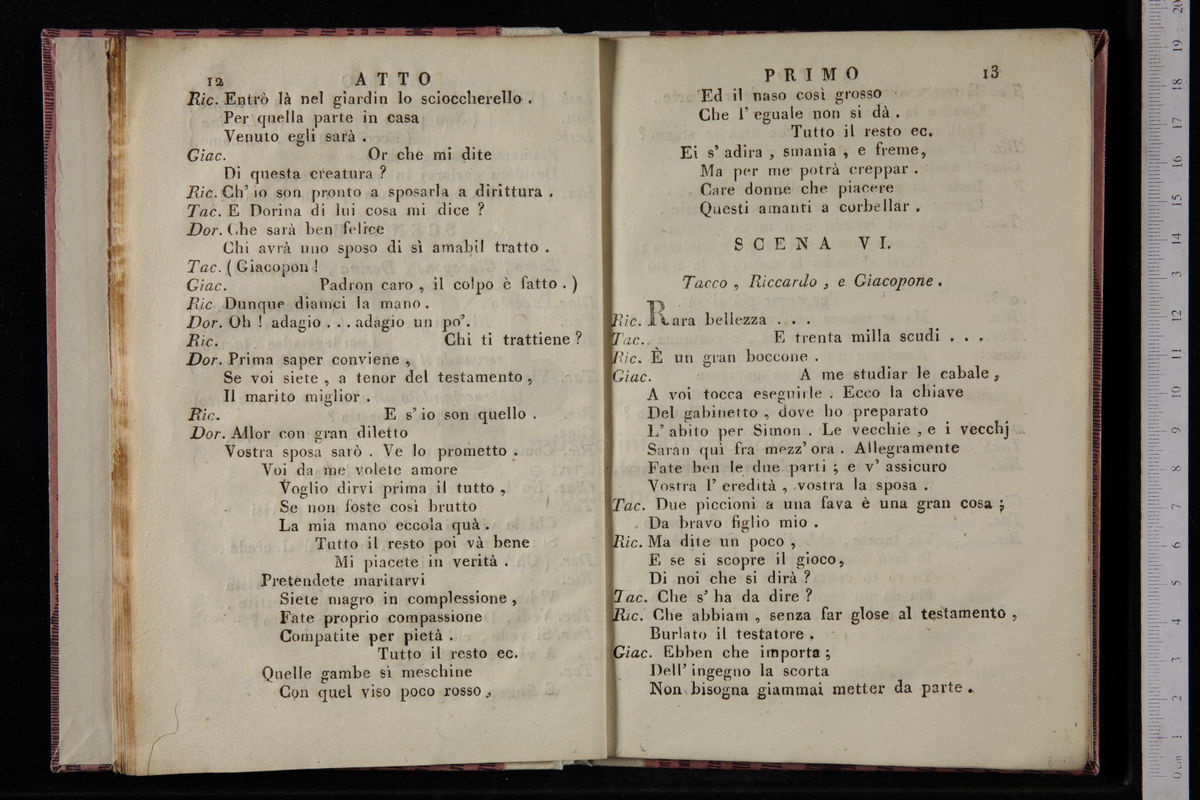 12 ATTO
Ric. Entrò là nel giardin lo scioccherello .
Per quella parte in casa
Venuto egli sarà .
Giac. Or che mi dite
Di questa creatura ?
Ric. Ch' io son pronto a sposarla a dirittura .
Tac. E Dorina di lui cosa mi dice ?
Dor. Che sarà ben felice
Chi avrà uno sposo di sì amabil tratto .
Tac. ( Giacopon !
Giac. Padron caro , il colpo è fatto . )
Ric Dunque diamci la mano .
Dor. Oh ! adagio . . . adagio un po'.
Ric. Chi ti trattiene ?
Dor. Prima saper conviene ,
Se voi siete , a tenor del testamento ,
Il marito miglior .
Ric. E s' io son quello .
Dor. Allor con gran diletto
Vostra sposa sarò . Ve lo prometto .
Voi da me volete amore
Voglio dirvi prima il tutto ,
Se non foste così brutto
La mia mano eccola quà .
Tutto il resto poi và bene
Mi piacete in verità .
Pretendete maritarvi
Siete magro in complessione ,
Fate proprio compassione
Compatite per pietà .
Tutto il resto ec.
Quelle gambe sì meschine
Con quel viso poco rosso ,
PRIMO 13
Ed il naso così grosso
Che l' eguale non si dà .
Tutto il resto ec.
Ei s' adira , smania , e freme,
Ma per me potrà creppar .
Care donne che piacere
Questi amanti a corbellar .
SCENA VI.
Tacco , Riccardo , e Giacopone .
Ric. Rara bellezza . . .
Tac. E trenta milla scudi . . .
Ric. È un gran boccone .
Giac. A me studiar le cabale ,
A voi tocca eseguirle . Ecco la chiave
Del gabinetto , dove ho preparato
L' abito per Simon . Le vecchie , e i vecchj
Saran quì fra mezz' ora . Allegramente
Fate ben le due parti ; e v' assicuro
Vostra l' eredità , vostra la sposa .
Tac. Due piccioni a una fava è una gran cosa ;
Da bravo figlio mio .
Ric. Ma dite un poco ,
E se si scopre il gioco,
Di noi che si dirà ?
Tac. Che s' ha da dire ?
Ric. Che abbiam , senza far glose al testamento ,
Burlato il testatore .
Giac. Ebben che importa ;
Dell' ingegno la scorta
Non bisogna giammai metter da parte .
0 cm 1 2 3 4 5 6 7 8 9 10 11 12 13 14 15 16 17 18 19 20